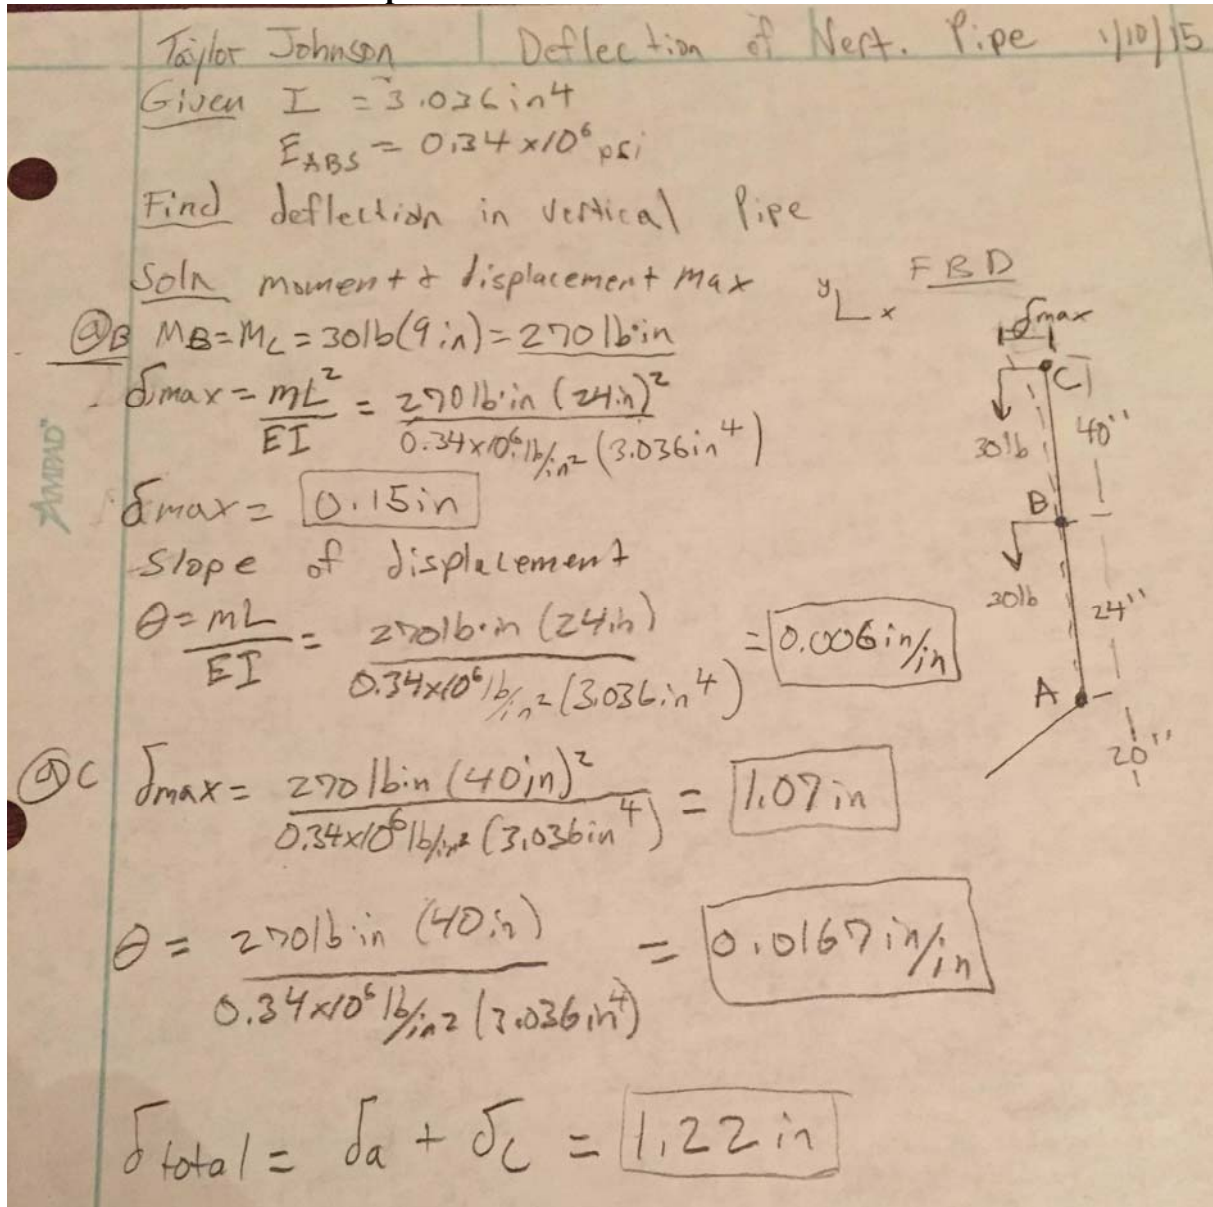 Taylor Johnson | Deflection of Vert. Pipe 1/10/15
Given I = 3.036 in4
E_ABS = 0.34 x10⁶ psi
Find deflection in vertical Pipe
Soln moment & displacement max
y x
FBD
@B M_B = M_C = 30lb(9in) = 270 lb·in
δmax = mL²/EI = 270 lb·in (24in)² / 0.34x10⁶ lb/in² (3.036in⁴)
δmax = 0.15in
Slope of displacement
θ = mL/EI = 270lb·in (24in) / 0.34x10⁶ lb/in² (3.036in⁴) = 0.006 in/in
@C δmax = 270 lb·in (40in)² / 0.34x10⁶ lb/in² (3.036in⁴) = 1.07 in
θ = 270lb·in (40in) / 0.34x10⁶ lb/in² (3.036in⁴) = 0.0167 in/in
δtotal = δa + δc = 1.22 in
δmax
C
30lb
40''
B
30lb
24''
A
20''
AMPAD